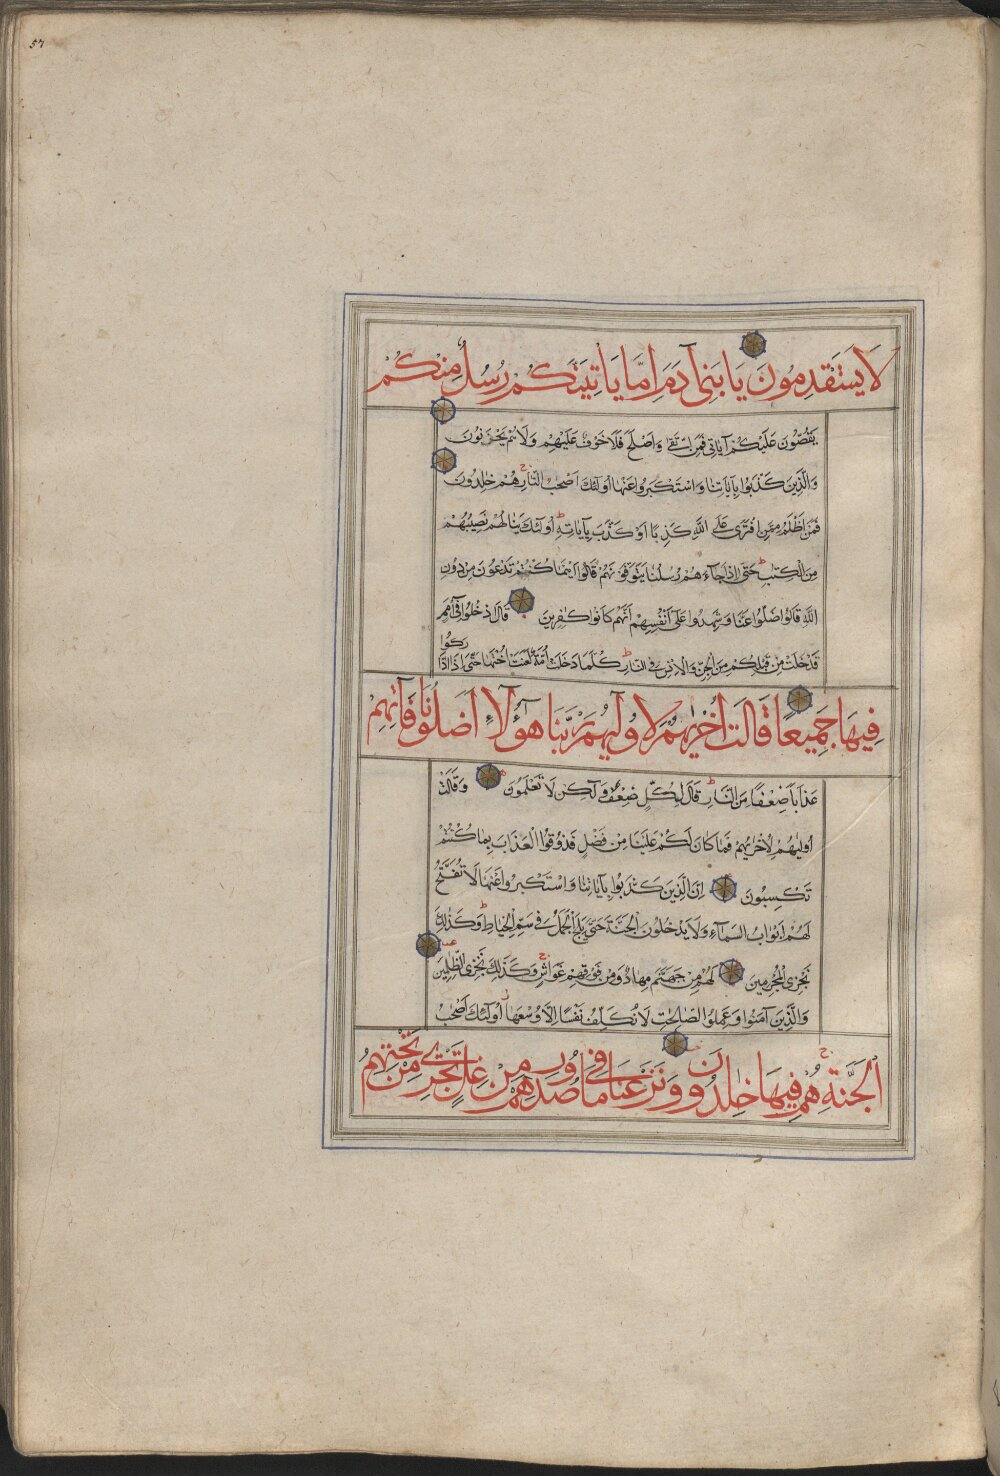 57
لَا يَسْتَقْدِمُونَ يَا بَنِي آدَمَ اِمَّا يَاْتِيَنَّكُمْ رُسُلٌ مِنْكُمْ
يَقُصُّونَ عَلَيْكُمْ آيَاتِي فَمَنِ اتَّقَىٰ وَاَصْلَحَ فَلَا خَوْفٌ عَلَيْهِمْ وَلَا هُمْ يَحْزَنُونَ
وَالَّذِينَ كَذَّبُوا بِآيَاتِنَا وَاسْتَكْبَرُوا عَنْهَا اُولٰئِكَ اَصْحٰبُ النَّارِ هُمْ خٰلِدُونَ
فَمَنْ اَظْلَمُ مِمَّنِ افْتَرٰى عَلَى اللّٰهِ كَذِبًا اَوْ كَذَّبَ بِآيَاتِهِ اُولٰئِكَ يَنَالُهُمْ نَصِيبُهُمْ
مِنَ الْكِتٰبِ حَتّٰى اِذَا جَآءَهُمْ رُسُلُنَا يَتَوَفَّوْنَهُمْ قَالُوا اَيْنَمَا كُنْتُمْ تَدْعُونَ مِنْ دُونِ
اللّٰهِ قَالُوا ضَلُّوا عَنَّا وَشَهِدُوا عَلٰى اَنْفُسِهِمْ اَنَّهُمْ كَانُوا كٰفِرِينَ قَالَ ادْخُلُوا فِي اُمَمٍ
قَدْ خَلَتْ مِنْ قَبْلِكُمْ مِنَ الْجِنِّ وَالْاِنْسِ فِي النَّارِ كُلَّمَا دَخَلَتْ اُمَّةٌ لَعَنَتْ اُخْتَهَا حَتّٰى اِذَا ادَّارَكُوا
فِيهَا جَمِيعًا قَالَتْ اُخْرٰيهُمْ لِاُولٰيهُمْ رَبَّنَا هٰٓؤُلَآءِ اَضَلُّونَا فَآتِهِمْ
عَذَابًا ضِعْفًا مِنَ النَّارِ قَالَ لِكُلٍّ ضِعْفٌ وَلٰكِنْ لَا تَعْلَمُونَ وَقَالَتْ
اُولٰيهُمْ لِاُخْرٰيهُمْ فَمَا كَانَ لَكُمْ عَلَيْنَا مِنْ فَضْلٍ فَذُوقُوا الْعَذَابَ بِمَا كُنْتُمْ
تَكْسِبُونَ اِنَّ الَّذِينَ كَذَّبُوا بِآيَاتِنَا وَاسْتَكْبَرُوا عَنْهَا لَا تُفَتَّحُ
لَهُمْ اَبْوَابُ السَّمَآءِ وَلَا يَدْخُلُونَ الْجَنَّةَ حَتّٰى يَلِجَ الْجَمَلُ فِي سَمِّ الْخِيَاطِ وَكَذٰلِكَ
نَجْزِي الْمُجْرِمِينَ لَهُمْ مِنْ جَهَنَّمَ مِهَادٌ وَمِنْ فَوْقِهِمْ غَوَاشٍ وَكَذٰلِكَ نَجْزِي الظّٰلِمِينَ
وَالَّذِينَ آمَنُوا وَعَمِلُوا الصّٰلِحٰتِ لَا نُكَلِّفُ نَفْسًا اِلَّا وُسْعَهَا اُولٰئِكَ اَصْحٰبُ
الْجَنَّةِ هُمْ فِيهَا خٰلِدُونَ وَنَزَعْنَا مَا فِي صُدُورِهِمْ مِنْ غِلٍّ تَجْرِي مِنْ تَحْتِهِمُ